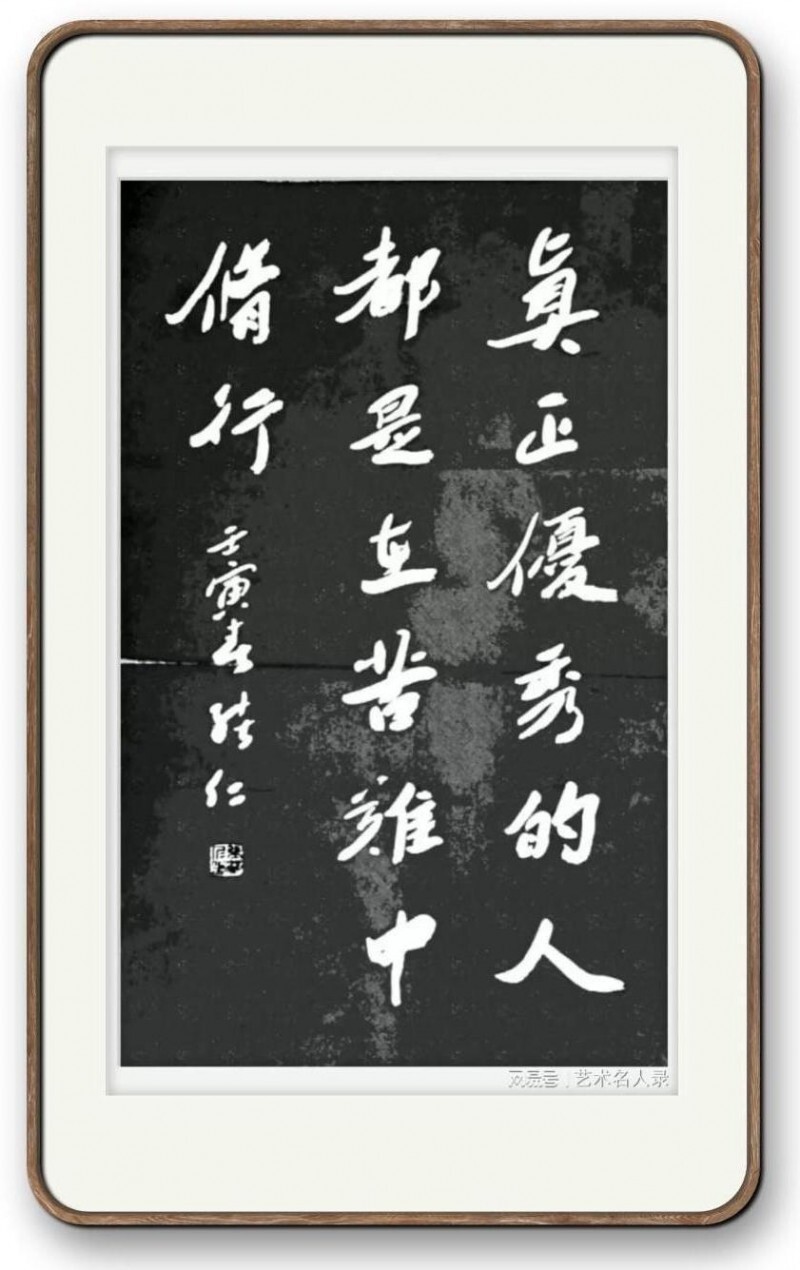 真正優秀的人
都是在苦難中
脩行
壬寅春
仁
艺术名人录